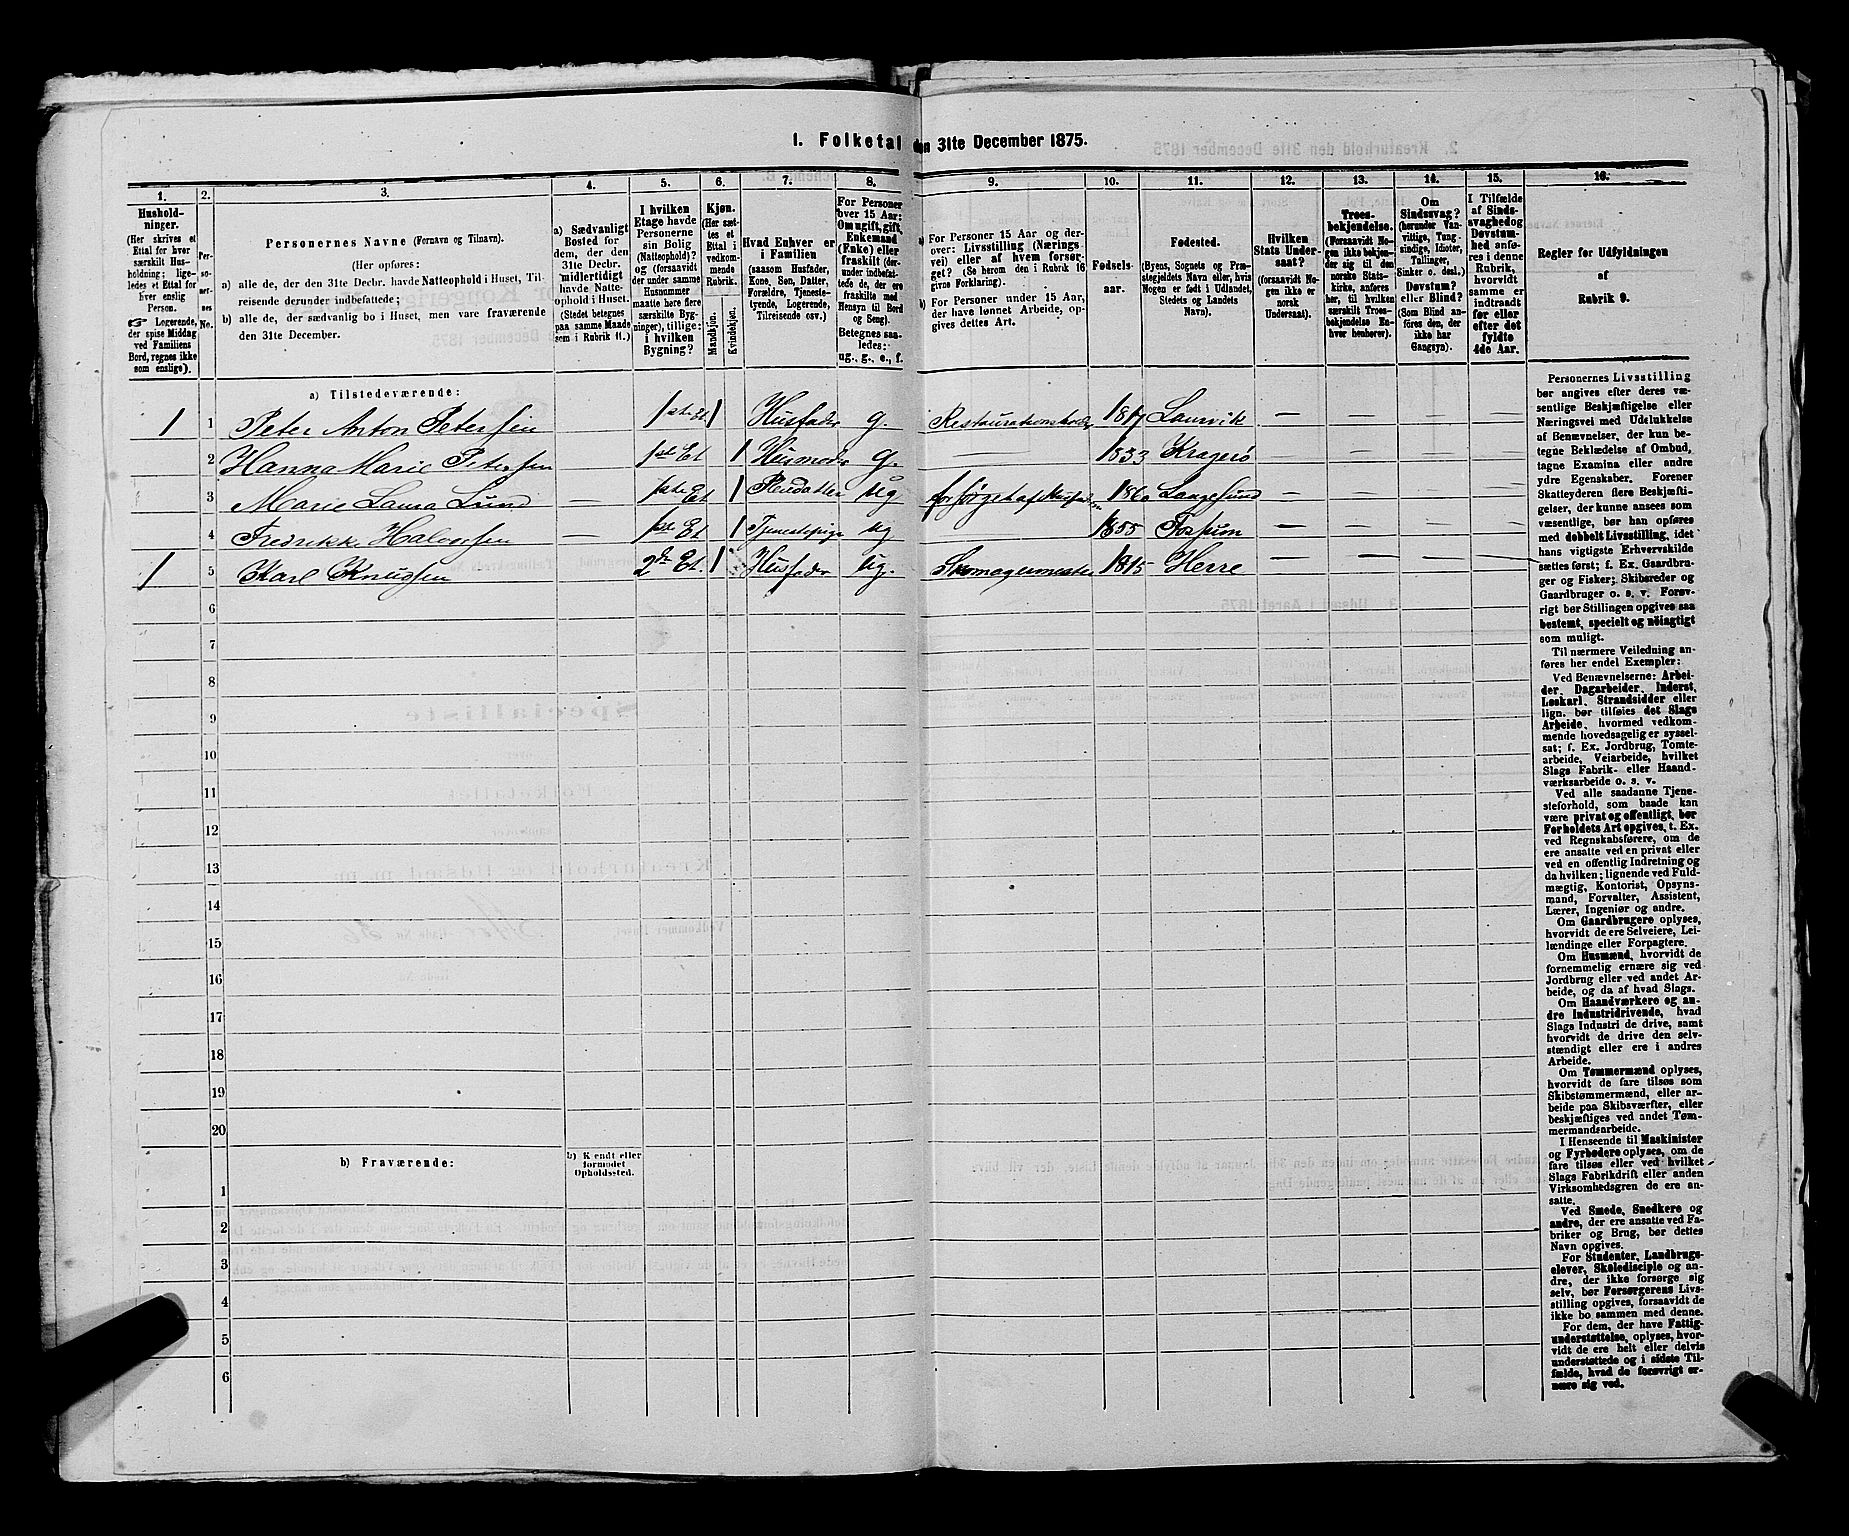 1. Folketal den 31te December 1875.
1. 2. 3. 4. 5. 6. 7. 8. 9. 10. 11. 12. 13. 14. 15. 16.
Hushold-
ninger.
(Her skrives et
Ettal for hver
særskilt Hus-
holdning; lige-
ledes et Ettal for
hver enslig
Person.
☞ Logerende,
der spise Middag
ved Familiens
Bord, regnes ikke
som enslige).
Per-
so-
ner-
nes
No.
Personernes Navne (Fornavn og Tilnavn).
(Her opføres:
a) alle de, der den 31te Decbr. havde Natteophold i Huset, Til-
reisende derunder indbefattede;
b) alle de, der sædvanlig bo i Huset, men vare fraværende
den 31te December.
a) Sædvanligt
Bosted for
dem, der den
31te Decbr.
midlertidigt
havde Natte-
ophold i Huset.
(Stedet betegnes
paa samme Maade
som i Rubrik 11.)
I hvilken
Etage havde
Personerne
sin Bolig
(Natteophold)?
og (forsaavidt
der under samme
Husnummer
maatte høre flere
særskilte Byg-
ninger), tillige:
i hvilken
Bygning?
Kjøn.
(Her sæt-
tes et
Ettal i
vedkom-
mende
Rubrik.
Mandkjøn.
Kvindekjøn.
Hvad Enhver er
i Familien
(saasom Husfader,
Kone, Søn, Datter,
Forældre, Tjeneste-
tyende, Logerende,
Tilreisende osv.)
For Personer
over 15 Aar:
Om ugift, gift,
Enkemand
(Enke) eller
fraskilt (der-
under indbefat-
tede de, der ere
fraskilte med
Hensyn til Bord
og Seng).
Betegnes saa-
ledes:
ug., g., e., f.
a) For Personer 15 Aar og der-
over: Livsstilling (Nærings-
vei) eller af hvem forsør-
get? (Se herom den i Rubrik 16
givne Forklaring).
b) For Personer under 15 Aar,
der have lønnet Arbeide, op-
gives dettes Art.
Fødsels-
aar.
Fødested.
(Byens, Sognets og Præ-
stegjeldets Navn eller, hvis
Nogen er født i Udlandet,
Stedets og Landets
Navn).
Hvilken
Stats Under-
saat?
(forsaavidt No-
gen ikke er
norsk
Undersaat).
Troes-
bekjendelse.
(Forsaavidt No-
gen ikke bekjen-
der sig til den
norske Stats-
kirke, anføres
her, til hvilken
særskilt Troes-
bekjendelse En-
hver henhører).
Om
Sindssvag?
(herunder Van-
vittige, Tung-
sindige, Idioter,
Tullinger,
Sinker o. desl.)
Døvstum?
eller Blind?
(Som Blind an-
føres den, der
ikke har
Gangsyn).
I Tilfælde
af Sinds-
svaghed og
Døvstum-
hed anfø-
res i denne
Rubrik,
hvorvidt
samme er
indtraadt
før eller
efter det
fyldte
4de Aar.
Regler for Udfyldningen
af
Rubrik 9.
a) Tilstedeværende:
1 1 Peter Anton Petersen 1ste Et 1 Husfader g. Restaurationsholder 1817 Laurvik — — —
2 Hanna Marie Petersen 1ste Et 1 Husmoder g. 1833 Kragerø — — —
3 Marie Laura Lund — 1ste Et 1 Pleiedatter ug forsørget af Husfaderen 1860 Langesund — — —
4 Fredrikke Halvorsen — 1ste Et 1 Tjenestepige ug 1855 Fossum — — —
1 5 Karl Knudsen 2den Et. 1 Husfader ug. Skomagermester 1815 Herre — — —
6
7
8
9
10
11
12
13
14
15
16
17
18
19
20
b) Fraværende:
b) Kjendt eller
formodet
Opholdssted.
1
2
3
4
5
6
Personernes Livsstilling
bør angives efter deres væ-
sentlige Beskjæftigelse eller
Næringsvei med Udelukkelse
af Benævnelser, der kun be-
tegne Beklædelse af Ombud,
tagne Examina eller andre
ydre Egenskaber. Forener
Skatteyderen flere Beskjæfti-
gelser, der kunne ansees som
væsentlige, bør han opføres
med dobbelt Livsstilling, idet
hans vigtigste Erhvervskilde
sættes først; f. Ex. Gaardbru-
ger og Fisker; Skibsreder og
Gaardbruger o. s. v. Forøv-
rigt bør Stillingen opgives saa
bestemt, specielt og nøiagtigt
som muligt.
Til nærmere Veiledning an-
føres her endel Exempler:
Ved Benævnelserne: Arbei-
der, Dagarbeider, Inderst,
Løskarl, Strandsidder eller
lign. bør tilføies det Slags
Arbeide, hvormed vedkom-
mende hovedsagelig er syssel-
sat; f. Ex. Jordbrug, Tomte-
arbeide, Veiarbeide, hvilket
Slags Fabrik- eller Haand-
værksarbeide o. s. v.
Ved alle saadanne Tjene-
steforhold, som baade kan
være privat og offentligt, bør
Forholdets Art opgives, t. Ex.
ved Regnskabsførere, om de
ere ansatte ved en privat eller
ved en offentlig Indretning og
da hvilken; lignende ved Fuld-
mægtig, Kontorist, Opsyns-
mand, Forvalter, Assistent,
Lærer, Ingeniør og andre.
Om Gaardbrugere oplyses,
hvorvidt de ere Selveiere, Lei-
lændinge eller Forpagtere.
Om Husmænd, hvorvidt de
fornemmelig ernære sig ved
Jordbrug eller ved andet Ar-
beide, og da af hvad Slags.
Om Haandværkere og an-
dre Industridrivende, hvad
Slags Industri de drive, samt
hvorvidt de drive den selv-
stændigt eller ere i andres
Arbeide.
Om Tømmermænd oplyses,
hvorvidt de fare tilsøs som
Skibstømmermænd, eller ar-
beide paa Skibsværfter, eller
beskjæftiges ved andet Tøm-
mermandsarbeide.
I Henseende til Maskinister
og Fyrbødere oplyses, om de
fare tilsøs eller ved hvilket
Slags Fabrikdrift eller anden
Virksomhedsgren de ere an-
satte.
Ved Smede, Snedkere og
andre, der ere ansatte ved Fa-
briker og Brug, bør dettes
Navn opgives.
For Studenter, Landbrugs-
elever, Skoledisciple og an-
dre, der ikke forsørge sig
selv, bør Forsørgerens Livs-
stilling opgives, forsaavidt de
ikke bo sammen med denne.
For dem, der have Fattig-
understøttelse, oplyses, hvor-
vidt de ere helt eller delvis
understøttede og i sidste Til-
fælde, hvad de forøvrigt er-
nære sig ved.